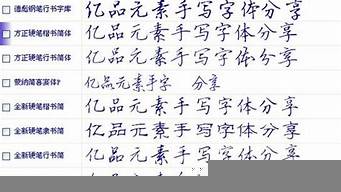 德彪钢笔行书字库 亿品元素手写字体分享
方正硬笔行书简 亿品元素手写字体分享
方正硬笔楷书简 亿品元素手写字体分享
亿品元素手字 分享
全新硬笔楷书简 亿品元素手写字体分享
全新硬笔隶书简 亿品元素手写字体分享
全新硬笔行书简 亿品元素手写字体分享